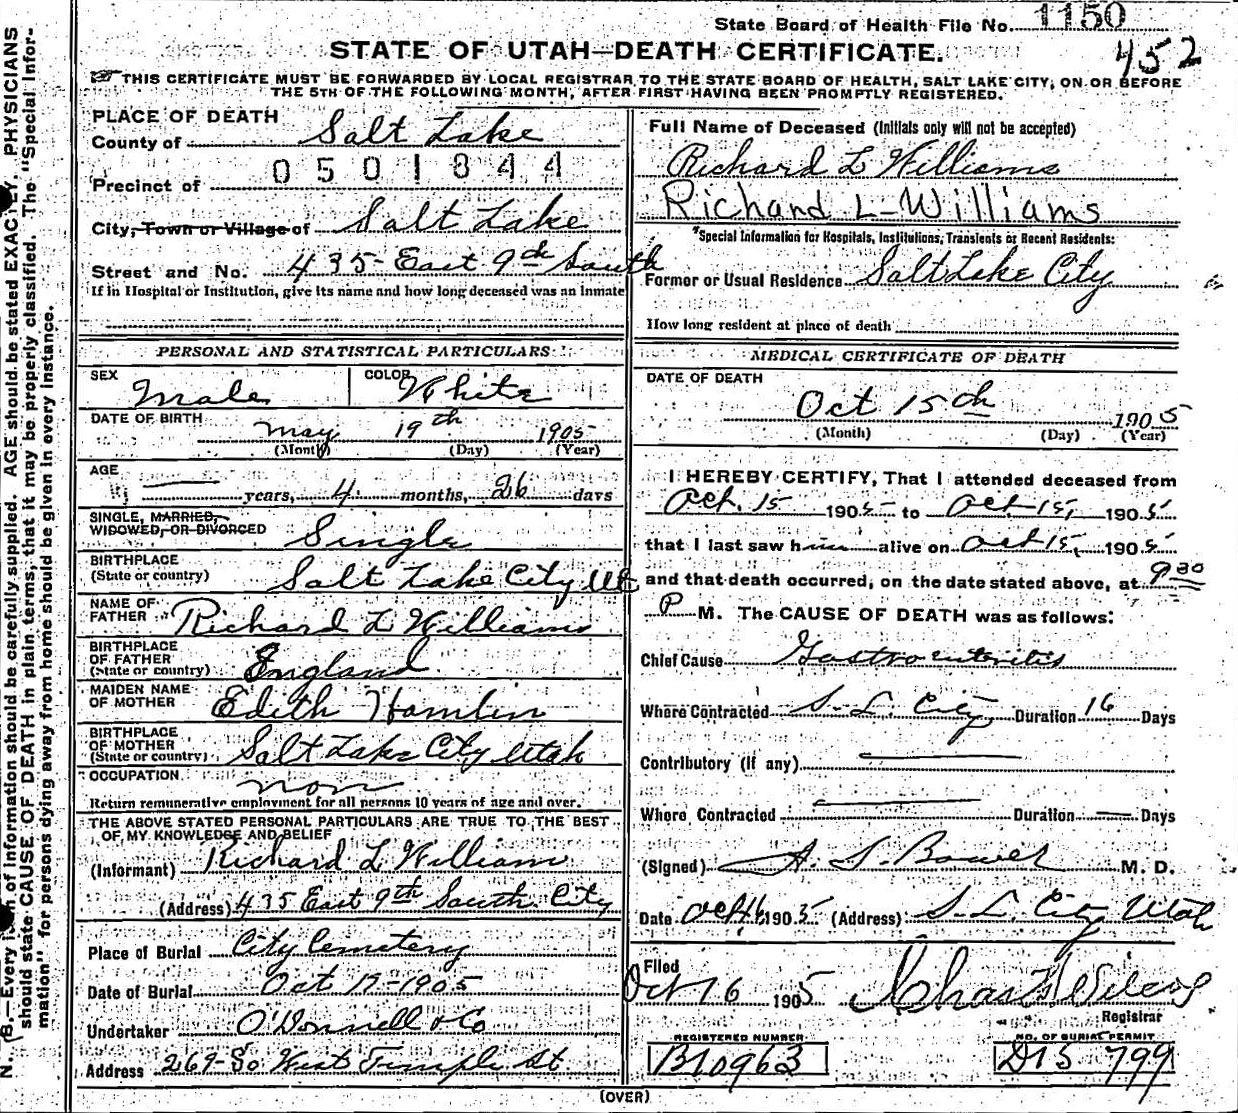 State Board of Health File No. 1150
452
STATE OF UTAH—DEATH CERTIFICATE.
THIS CERTIFICATE MUST BE FORWARDED BY LOCAL REGISTRAR TO THE STATE BOARD OF HEALTH, SALT LAKE CITY, ON OR BEFORE
THE 5TH OF THE FOLLOWING MONTH, AFTER FIRST HAVING BEEN PROMPTLY REGISTERED.
PLACE OF DEATH
County of Salt Lake
0501844
Precinct of
City, Town or Village of Salt Lake
Street and No. 435 East 9th South
If in Hospital or Institution, give its name and how long deceased was an inmate
PERSONAL AND STATISTICAL PARTICULARS
SEX Male COLOR White
DATE OF BIRTH
May 19th 1905
(Month) (Day) (Year)
AGE
— years, 4 months, 26 days
SINGLE, MARRIED,
WIDOWED, OR DIVORCED Single
BIRTHPLACE
(State or country) Salt Lake City Ut
NAME OF
FATHER Richard L Williams
BIRTHPLACE
OF FATHER
(State or country) England
MAIDEN NAME
OF MOTHER Edith Hamlin
BIRTHPLACE
OF MOTHER
(State or country) Salt Lake City Utah
OCCUPATION non
Return remunerative employment for all persons 10 years of age and over.
THE ABOVE STATED PERSONAL PARTICULARS ARE TRUE TO THE BEST
OF MY KNOWLEDGE AND BELIEF
(Informant) Richard L William
(Address) 435 East 9th South City
Place of Burial City Cemetery
Date of Burial Oct 17-1905
Undertaker O'Donnell & Co
Address 269-So West Temple St
Full Name of Deceased (Initials only will not be accepted)
Richard L Williams
Richard L-Williams
*Special Information for Hospitals, Institutions, Transients or Recent Residents:
Former or Usual Residence Salt Lake City
How long resident at place of death
MEDICAL CERTIFICATE OF DEATH
DATE OF DEATH
Oct 15th 1905
(Month) (Day) (Year)
I HEREBY CERTIFY, That I attended deceased from
Oct. 15 1905 to Oct 15, 1905
that I last saw him alive on Oct 15, 1905
and that death occurred, on the date stated above, at 9 30
P M. The CAUSE OF DEATH was as follows:
Chief Cause Gastro enteritis
Where Contracted S. L. City, Duration 16 Days
Contributory (if any) —
Where Contracted — Duration — Days
(Signed) A. S. Bower M. D.
Date Oct 16 1905 (Address) S. L. City Utah
Filed
Oct 16 1905 Chas Wilcox
Registrar
REGISTERED NUMBER
B10963
NO. OF BURIAL PERMIT
D15 799
(OVER)
N. B.—Every item of information should be carefully supplied. AGE should be stated EXACTLY. PHYSICIANS
should state CAUSE OF DEATH in plain terms, that it may be properly classified. The "Special Infor-
mation" for persons dying away from home should be given in every instance.